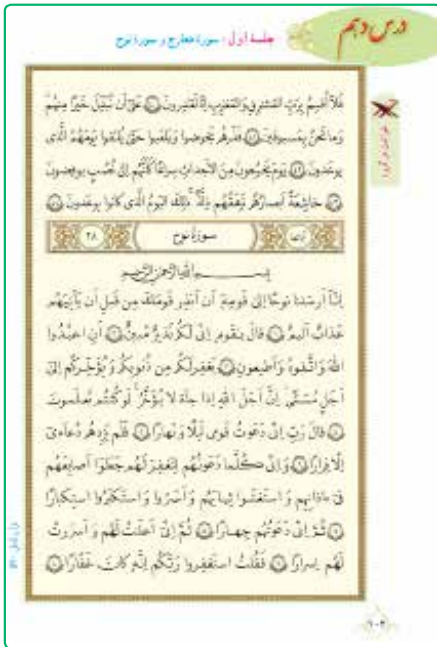 درس دهم
جلسه اول : سورهٔ معارج و سورهٔ نوح
فَلا اُقسِمُ بِرَبِّ المَشارِقِ وَالمَغارِبِ اِنّا لَقادِرونَ ﴿٤٠﴾ عَلىٰ اَن نُبَدِّلَ خَيرًا مِنهُم
وَما نَحنُ بِمَسبوقينَ ﴿٤١﴾ فَذَرهُم يَخوضوا وَيَلعَبوا حَتّىٰ يُلاقوا يَومَهُمُ الَّذى
يوعَدونَ ﴿٤٢﴾ يَومَ يَخرُجونَ مِنَ الاَجداثِ سِراعًا كَاَنَّهُم اِلىٰ نُصُبٍ يوفِضونَ
﴿٤٣﴾ خاشِعَةً اَبصارُهُم تَرهَقُهُم ذِلَّةٌ ۚ ذٰلِكَ اليَومُ الَّذى كانوا يوعَدونَ ﴿٤٤﴾
سورهٔ نوح
٢٨
بِسمِ اللهِ الرَّحمٰنِ الرَّحيمِ
اِنّا اَرسَلنا نوحًا اِلىٰ قَومِهٖ اَن اَنذِر قَومَكَ مِن قَبلِ اَن يَأتِيَهُم
عَذابٌ اَليمٌ ﴿١﴾ قالَ يا قَومِ اِنّى لَكُم نَذيرٌ مُبينٌ ﴿٢﴾ اَنِ اعبُدُوا
اللهَ وَاتَّقوهُ وَاَطيعونِ ﴿٣﴾ يَغفِر لَكُم مِن ذُنوبِكُم وَيُؤَخِّركُم اِلىٰ
اَجَلٍ مُسَمًّى ۚ اِنَّ اَجَلَ اللهِ اِذا جاءَ لا يُؤَخَّرُ ۖ لَو كُنتُم تَعلَمونَ
﴿٤﴾ قالَ رَبِّ اِنّى دَعَوتُ قَومى لَيلًا وَنَهارًا ﴿٥﴾ فَلَم يَزِدهُم دُعاءى
اِلّا فِرارًا ﴿٦﴾ وَاِنّى كُلَّما دَعَوتُهُم لِتَغفِرَ لَهُم جَعَلوا اَصابِعَهُم
فى ءاذانِهِم وَاستَغشَوا ثِيابَهُم وَاَصَرّوا وَاستَكبَرُوا استِكبارًا
﴿٧﴾ ثُمَّ اِنّى دَعَوتُهُم جِهارًا ﴿٨﴾ ثُمَّ اِنّى اَعلَنتُ لَهُم وَاَسرَرتُ
لَهُم اِسرارًا ﴿٩﴾ فَقُلتُ استَغفِروا رَبَّكُم اِنَّهٗ كانَ غَفّارًا ﴿١٠﴾
١٠٢